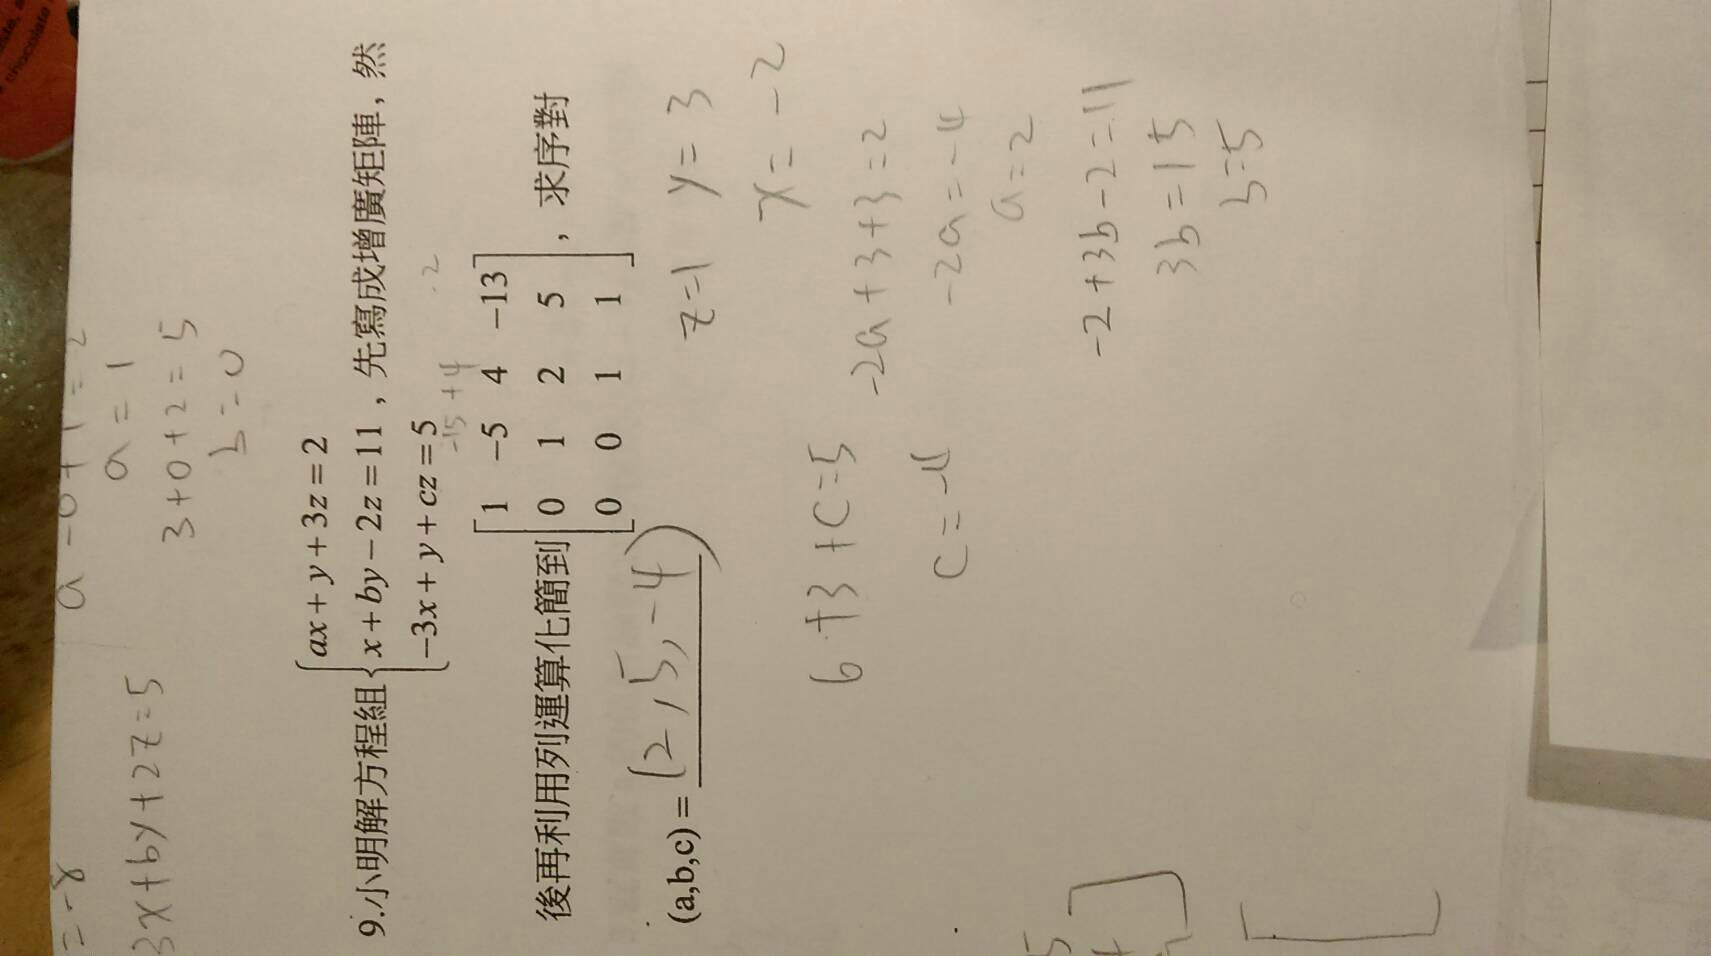 chocolate
= -8
3x+by+2z=5
a = 1
3+0+2=5
b=0
9.小明解方程組{ax+y+3z=2
x+by-2z=11，先寫成增廣矩陣，然
-3x+y+cz=5
-15+4
-2
後再利用列運算化簡到[1 -5 4 -13
0 1 2 5
0 0 1 1]，求序對
(a,b,c)= (2,5,-4)
z=1 y=3
x=-2
6+3+c=5
c=-4
-2a+3+3=2
-2a=-4
a=2
-2+3b-2=11
3b=15
b=5